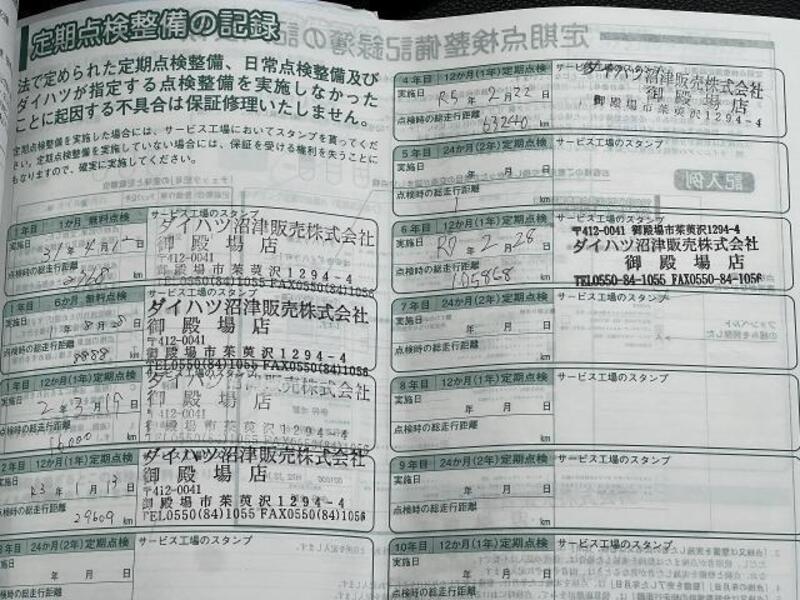 定期点検整備の記録
法で定められた定期点検整備、日常点検整備及び
ダイハツが指定する点検整備を実施しなかった
ことに起因する不具合は保証修理いたしません。
定期点検整備を実施した場合には、サービス工場においてスタンプを貰ってくだ
さい。定期点検整備を実施していない場合には、保証を受ける権利を失うことに
もなりますので、確実に実施してください。
1年目 1か月 無料点検 サービス工場のスタンプ
実施日 31年4月12日
点検時の総走行距離
km
ダイハツ沼津販売株式会社
御殿場店
〒412-0041
御殿場市茱萸沢1294-4
TEL0550(84)1055 FAX0550(84)1056
1年目 6か月 無料点検 サービス工場のスタンプ
実施日 1年8月28日
点検時の総走行距離
8888 km
ダイハツ沼津販売株式会社
御殿場店
〒412-0041
御殿場市茱萸沢1294-4
TEL0550(84)1055 FAX0550(84)1056
1年目 12か月(1年)定期点検 サービス工場のスタンプ
実施日 2年3月19日
点検時の総走行距離
16000 km
ダイハツ沼津販売株式会社
御殿場店
〒412-0041
御殿場市茱萸沢1294-4
2年目 12か月(1年)定期点検
実施日 R3年1月13日
点検時の総走行距離
29609 km
ダイハツ沼津販売株式会社
御殿場店
〒412-0041
御殿場市茱萸沢1294-4
TEL0550(84)1055 FAX0550(84)1056
24か月(2年)定期点検 サービス工場のスタンプ
実施日 年 月 日
4年目 12か月(1年)定期点検 サービス工場のスタンプ
実施日 R5年2月22日
点検時の総走行距離
63240 km
ダイハツ沼津販売株式会社
御殿場店
御殿場市茱萸沢1294-4
5年目 24か月(2年)定期点検 サービス工場のスタンプ
実施日 年 月 日
点検時の総走行距離
km
6年目 12か月(1年)定期点検 サービス工場のスタンプ
実施日 R7年2月28日
点検時の総走行距離
105868 km
〒412-0041 御殿場市茱萸沢1294-4
ダイハツ沼津販売株式会社
御殿場店
TEL0550-84-1055 FAX0550-84-1056
7年目 24か月(2年)定期点検 サービス工場のスタンプ
実施日 年 月 日
点検時の総走行距離
km
8年目 12か月(1年)定期点検 サービス工場のスタンプ
実施日 年 月 日
点検時の総走行距離
km
9年目 24か月(2年)定期点検 サービス工場のスタンプ
実施日 年 月 日
点検時の総走行距離
km
10年目 12か月(1年)定期点検 サービス工場のスタンプ
実施日 年 月 日
点検時の総走行距離